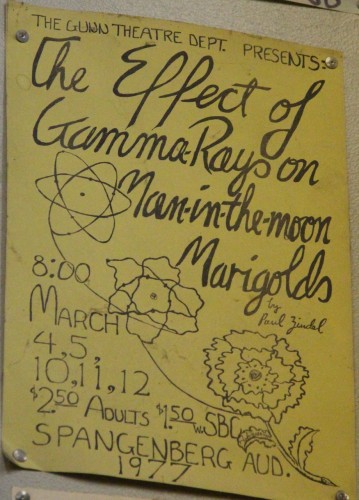 THE GUNN THEATRE DEPT. PRESENTS:
The Effect of
Gamma-Rays on
Man-in-the-moon
Marigolds
by
Paul Zindel
8:00
MARCH
4, 5,
10, 11, 12
$2.50 ADULTS $1.50 w/SBC
SPANGENBERG AUD.
1977